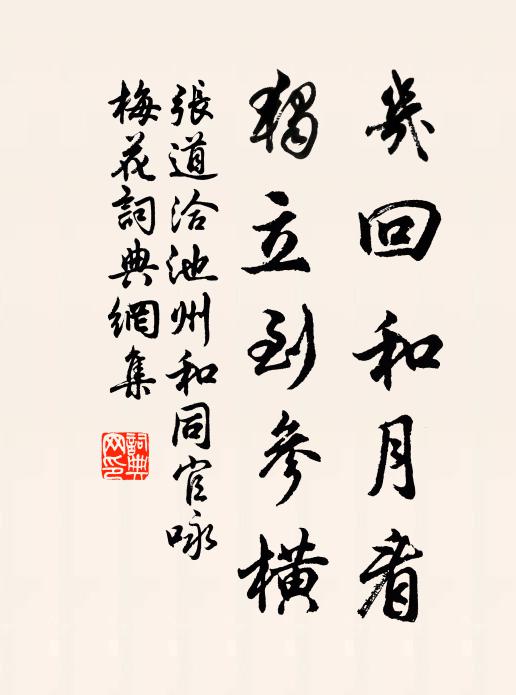 幾回和月看
獨立到參橫
張道洽池州和同官咏
梅花詞典網集
詞典網印